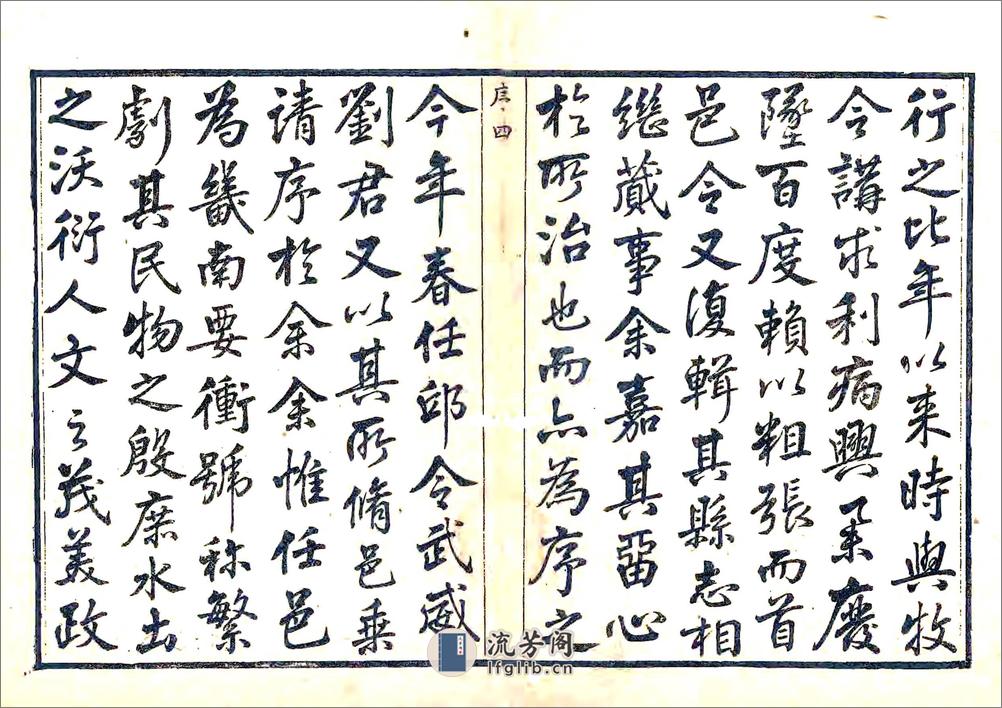 行之比年以来時與牧
令講求利病興举廢
墜百度賴以粗張而首
邑令又復輯其縣志相
繼蕆事余嘉其留心
於所治也而亦為序之
序 四
今年春任邱令武威
劉君又以其所脩邑乗
請序於余余惟任邑
為畿南要衝號称繁
劇其民物之殷庶水土
之沃衍人文之茂美政
流芳阁
lfglib.cn